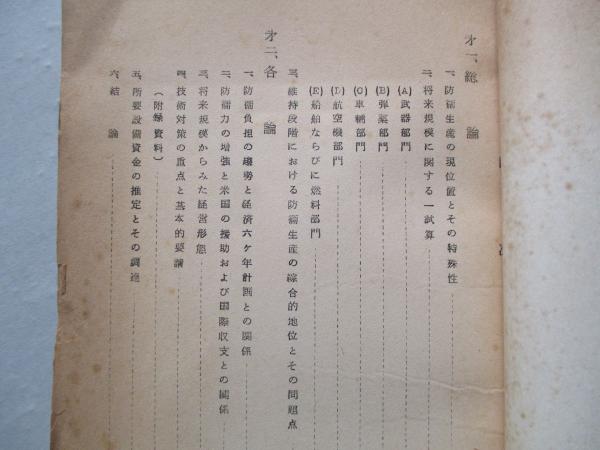 目次
才一、総論
一、防衛生産の現位置とその特殊性
二、将来規模に関する一試算
(A)武器部門
(B)弾薬部門
(C)車輛部門
(D)航空機部門
(E)船舶ならびに燃料部門
三、維持段階における防衛生産の綜合的地位とその問題点
才二、各論
一、防衛負担の趨勢と経済六ケ年計画との関係
二、防衛力の増強と米国の援助および国際収支との関係
三、将来規模からみた経営形態
四、技術対策の重点と基本的要論
(附録資料)
五、所要設備資金の推定とその調達
六、結論